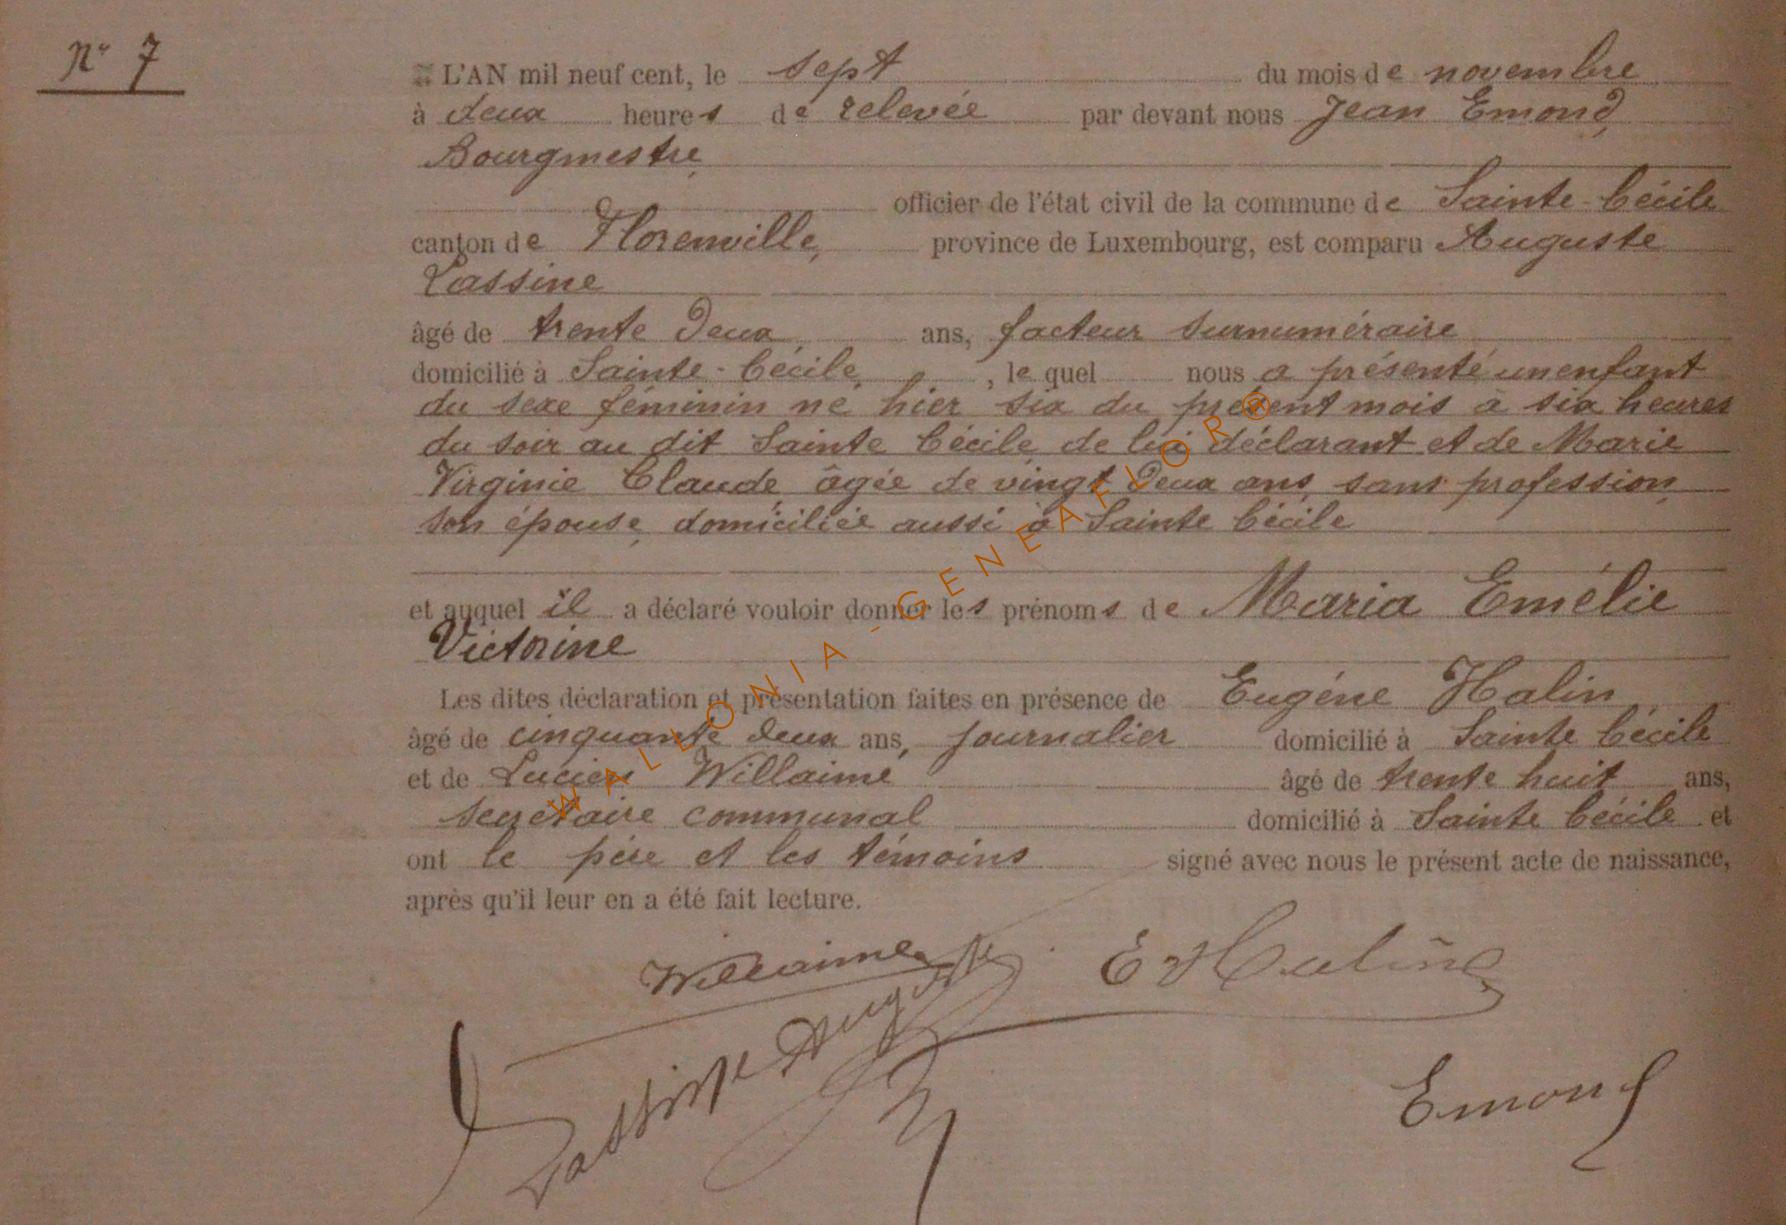 N° 7
L'AN mil neuf cent, le sept du mois de novembre
à deux heures de relevée par devant nous Jean Emond,
Bourgmestre,
officier de l'état civil de la commune de Sainte-Cécile
canton de Florenville, province de Luxembourg, est comparu Auguste
Lassine
âgé de trente deux ans, facteur surnuméraire
domicilié à Sainte-Cécile, lequel nous a présenté un enfant
du sexe féminin né hier six du présent mois à six heures
du soir au dit Sainte Cécile de lui déclarant et de Marie
Virginie Claude âgée de vingt deux ans, sans profession,
son épouse, domiciliée aussi à Sainte Cécile
et auquel il a déclaré vouloir donner les prénoms de Maria Emélie
Victorine
Les dites déclaration et présentation faites en présence de Eugéne Halin,
âgé de cinquante deux ans, journalier domicilié à Sainte Cécile
et de Lucien Willaime âgé de trente huit ans,
secrétaire communal domicilié à Sainte Cécile et
ont le père et les témoins signé avec nous le présent acte de naissance,
après qu'il leur en a été fait lecture.
Willaime E Halin
Lassine Auguste
Emond
WALLONIA-GENEAFLOR®